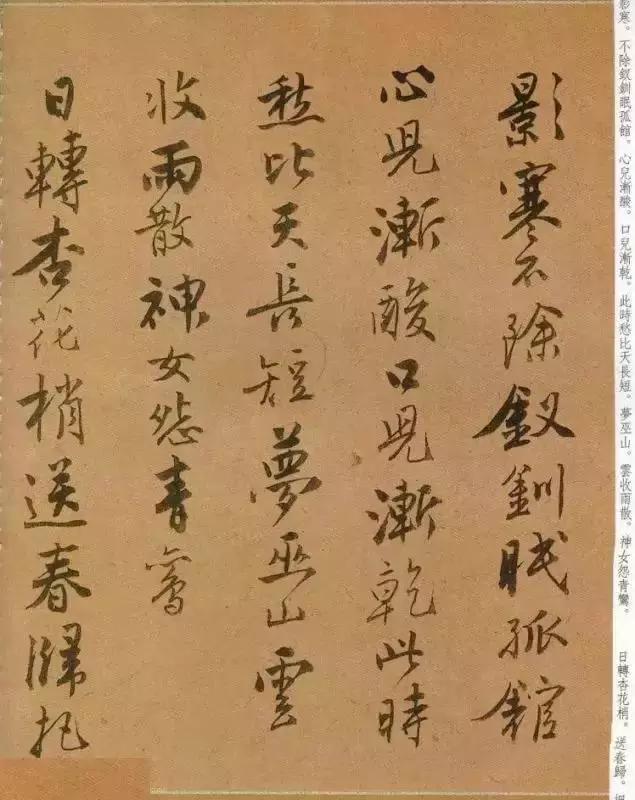 影寒。不除釵釧眠孤館。心兒漸酸。口兒漸乾。此時愁比天長短。夢巫山。雲收雨散。神女怨青鸞。
日轉杏花梢。送春歸。
影寒不除釵釧眠孤館
心児漸酸口児漸乾此時
愁比天長短夢巫山雲
收雨散神女怨青鸞
日轉杏花梢送春歸把